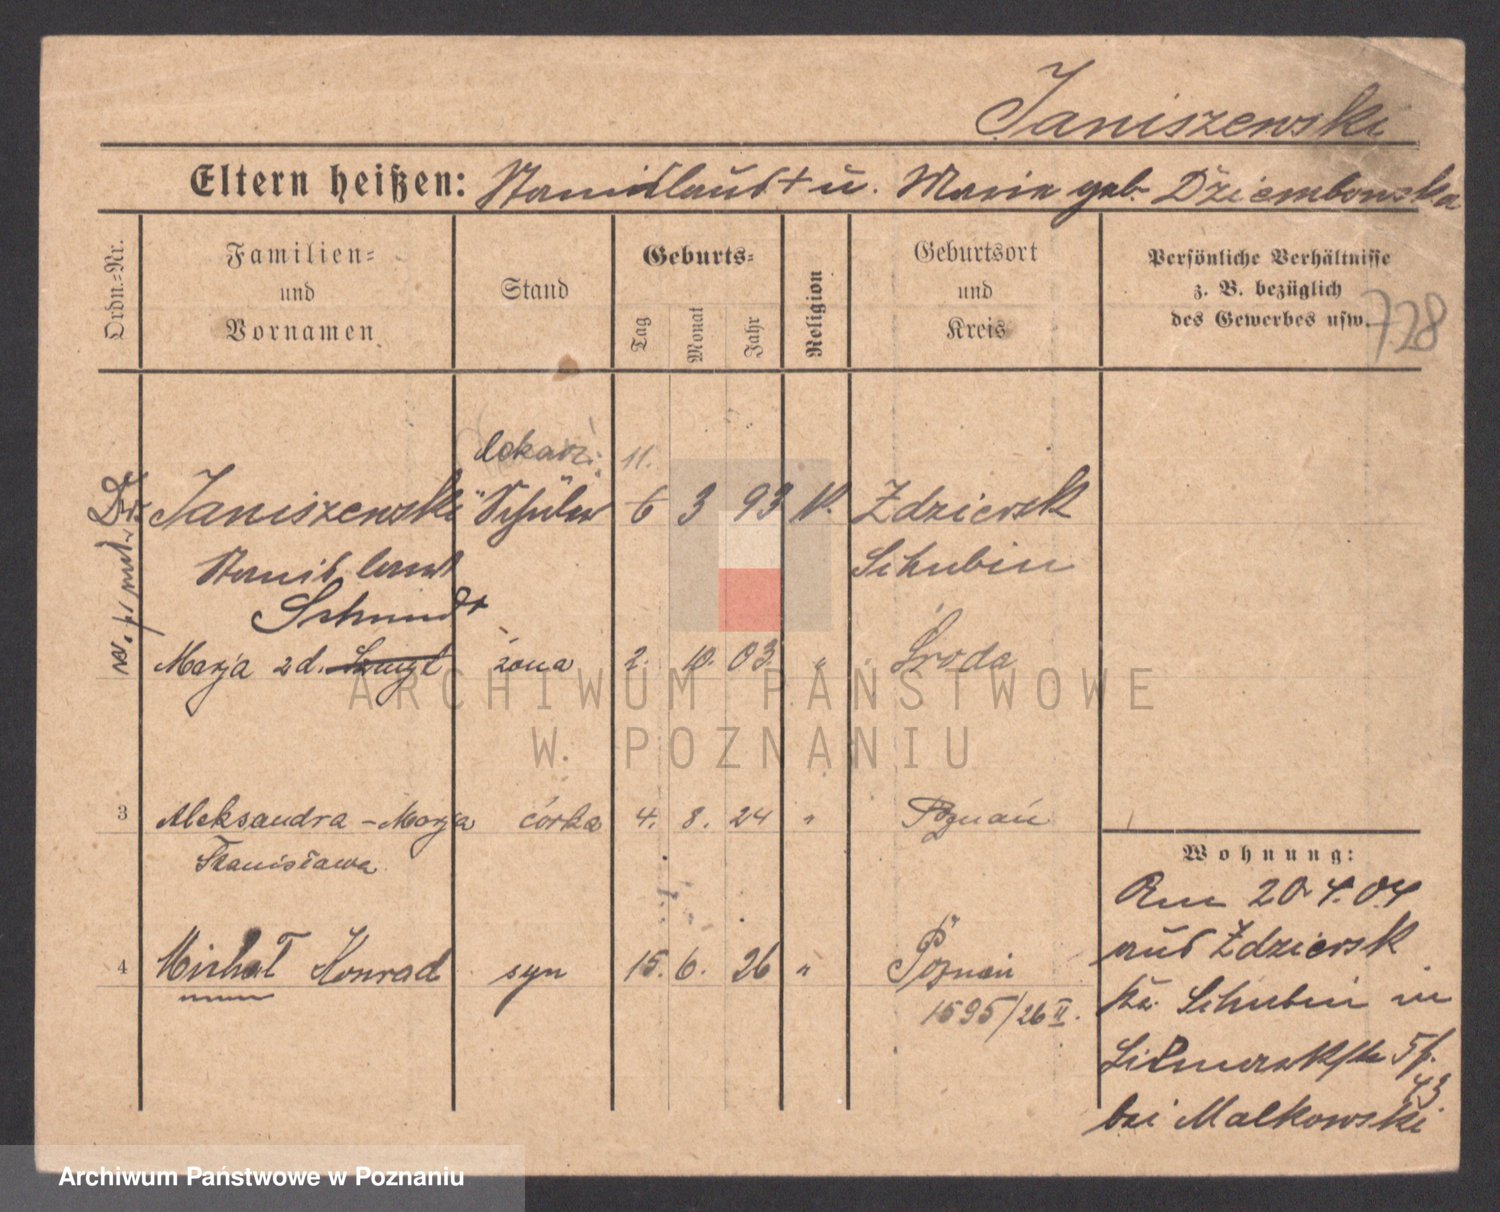 Janiszewski
Eltern heißen: Stanislaus + u. Maria geb. Dziembowska
Ordn.-Nr.
Familien-
und
Vornamen
Stand
Geburts-
Tag
Monat
Jahr
Religion
Geburtsort
und
Kreis
Persönliche Verhältnisse
z. B. bezüglich
des Gewerbes usw.
728
lekarz 11.
Dr. Janiszewski Schüler 6 3 93 k. Zdziersk
Stanislaus Schubin
Schmidt
Marja zd. żona 2. 10. 03. " Środa
3 Aleksandra - Marja córka 4. 8. 24 " Poznań
Stanisława
4 Michał Konrad syn 15. 6. 26 " Poznań
1595/26 II.
Wohnung:
Am 20.4.04
aus Zdziersk
Kr. Schubin in
5 f.
43
bei Malkowski
ARCHIWUM PAŃSTWOWE
W POZNANIU
Archiwum Państwowe w Poznaniu